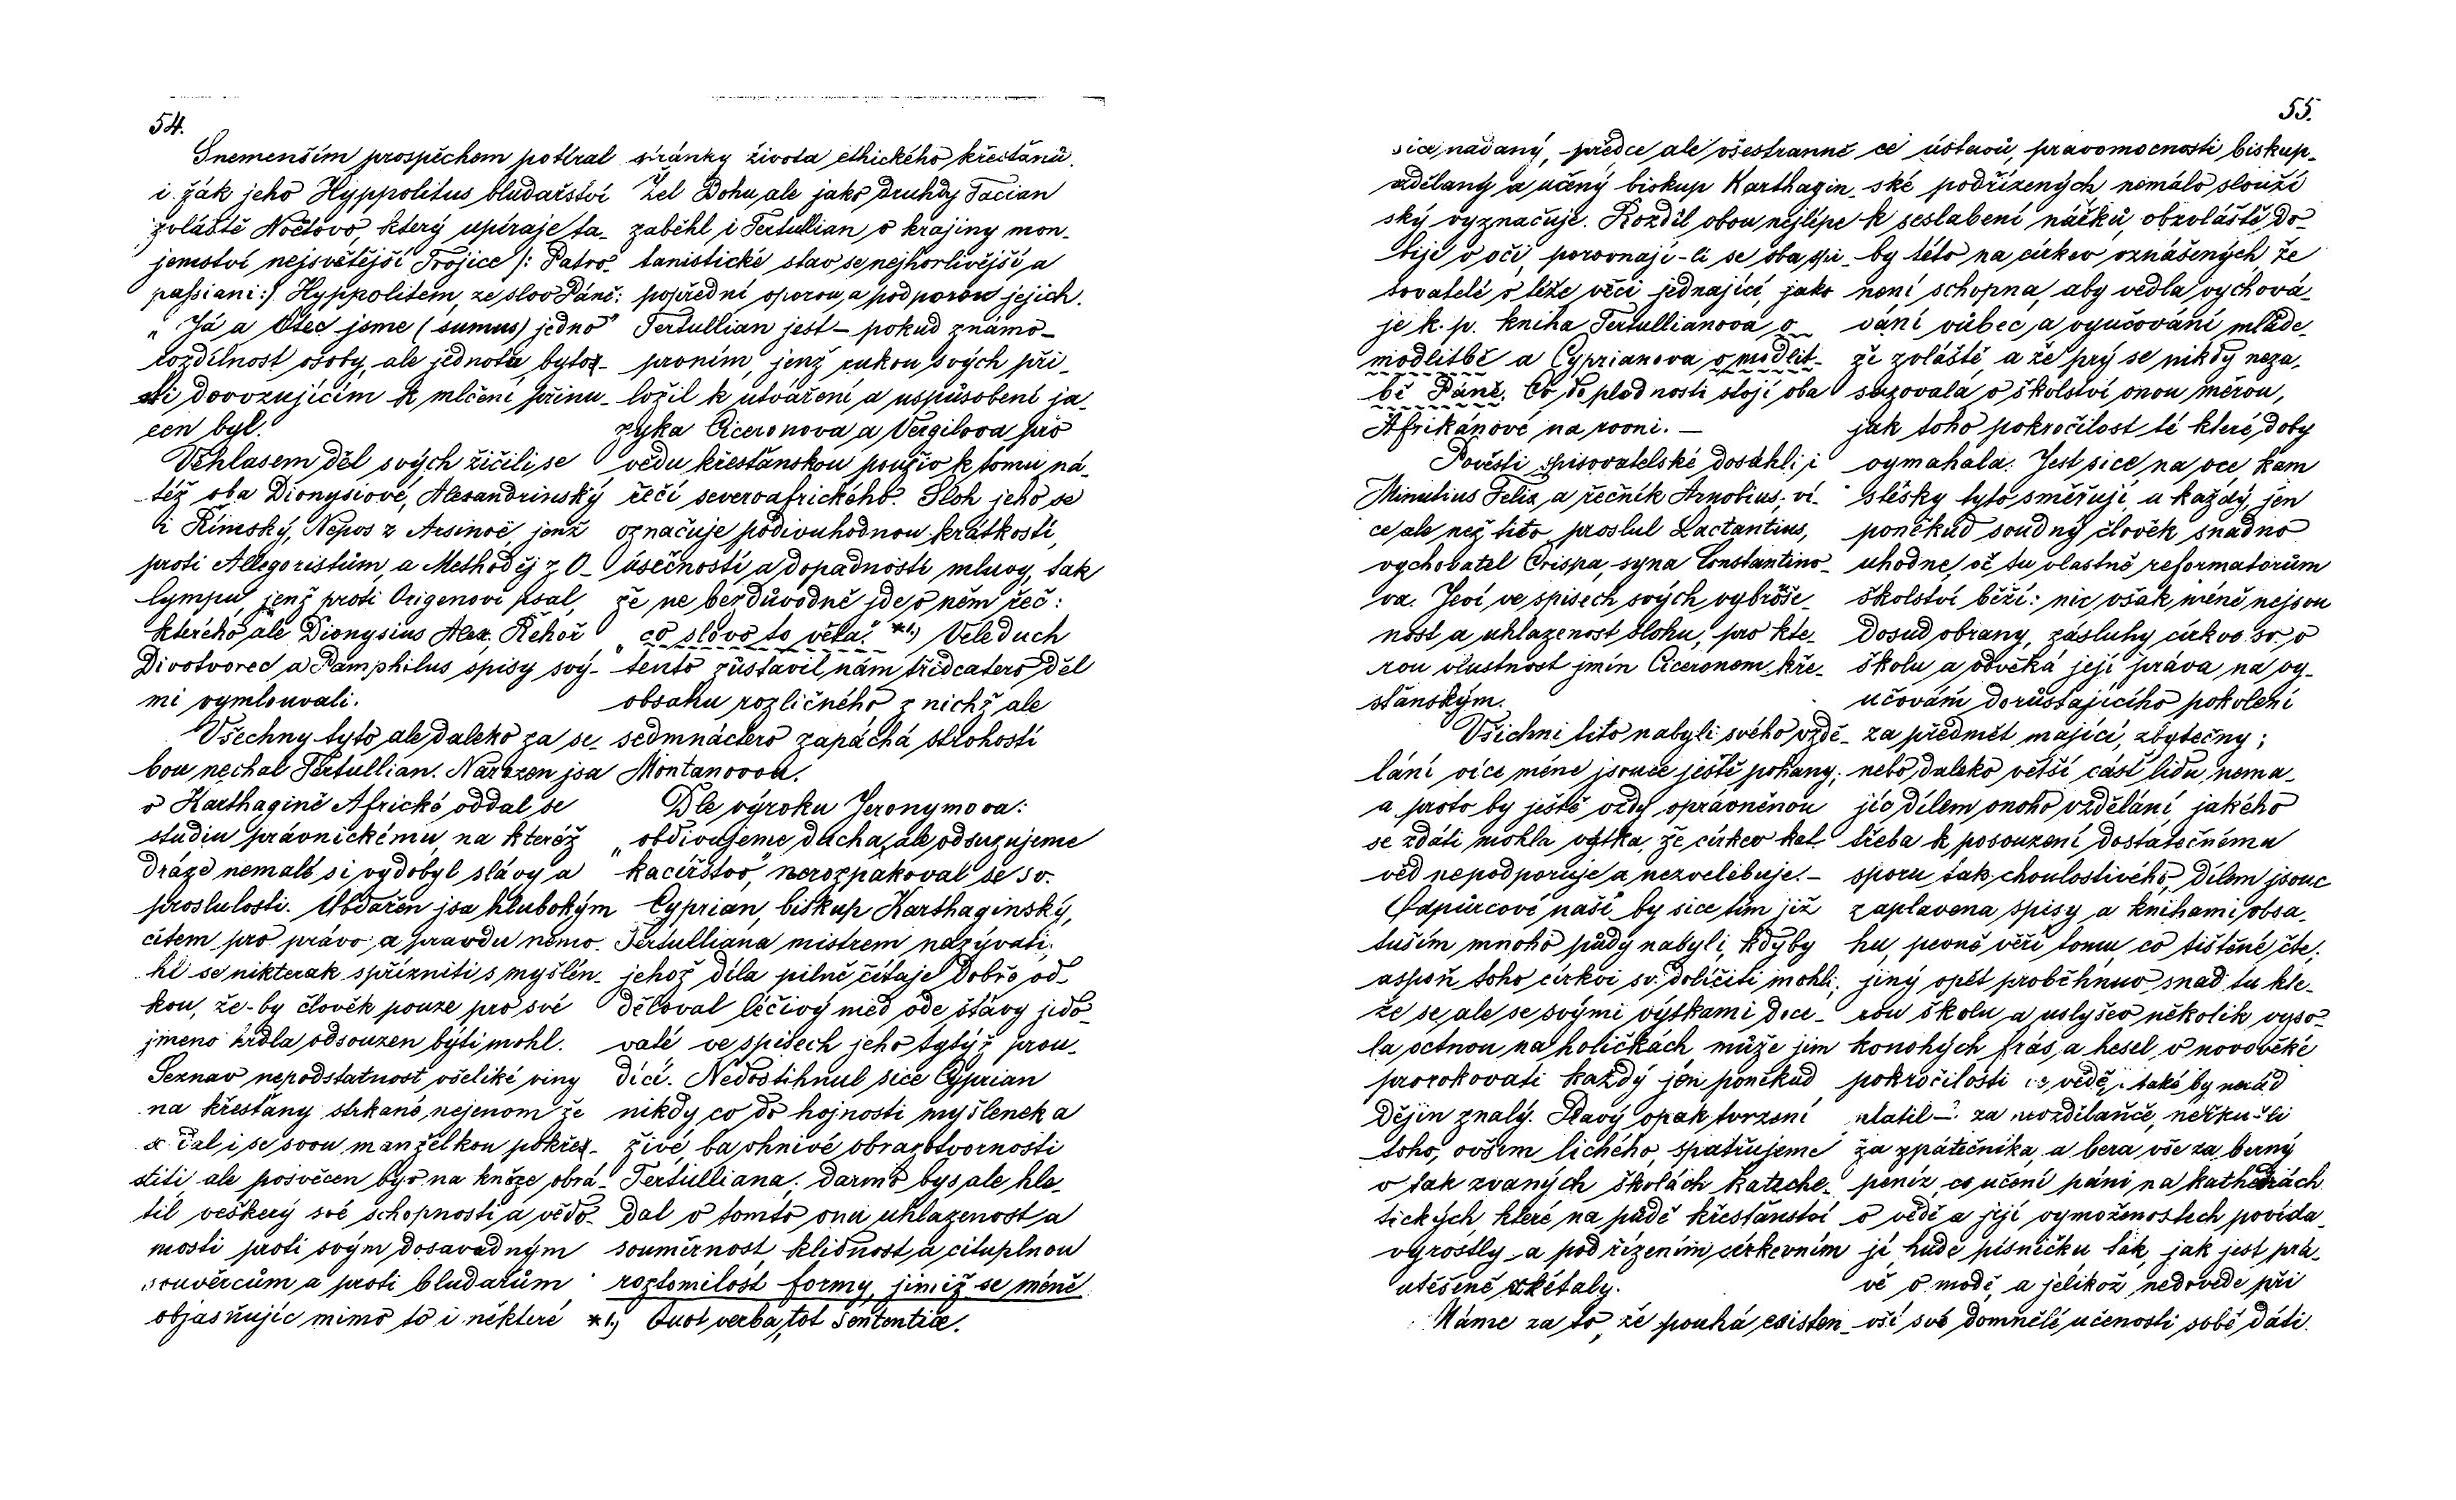 54.
Snemenším prospěchem potíral
i žák jeho Hyppolitus bludařství
zvláště Nöčtovo, který upíraje ta-
jemství nejsvětější Trojice /: Patro-
passiani :/ Hyppolitem, ze slov Páně:
"Já a Otec jsme (sumus) jedno"
rozdílnost osoby, ale jednota bytos-
ti dovozujícím k mlčení přinu-
cen byl.
Věhlasem děl svých žičili se
též oba Dionysiové, Alexandrinský
i Římský, Nepos z Arsinoë, jenž
proti Allegoristům, a Methoděj z O-
lympu, jenž proti Origenovi psal,
kterého ale Dionysius Alex. Řehoř
Divotvorec a Pamphilus spisy svý-
mi vymlouvali.
Všechny tyto ale daleko za se-
bou nechal Tertullian. Narozen jsa
v Karthagině Africké oddal se
studiu právnickému, na kteréž
dráze nemalé si vydobyl slávy a
proslulosti. Obdařen jsa hlubokým
citem pro právo a pravdu nemo-
hl se nikterak spřízniti s myšlén-
kou, že-by člověk pouze pro své
jmeno hrdla odsouzen býti mohl.
Seznav nepodstatnost všeliké viny
na křesťany strkané, nejenom že
dal i se svou manželkou pokřes-
titi ale posvěcen byv na kněze obrá-
til veškerý své schopnosti a vědo-
mosti proti svým dosavadným
souvěrcům a proti bludařům
objasňujíc mimo to i některé
stránky života ethického křesťanů.
Žel Bohu, ale jako druhdy Tacian
zaběhl i Tertullian v krajiny mon-
tanistické stav se nejhorlivější a
popřední oporou a podporou jejich.
Tertullian jest – pokud známo –
prvním, jenž rukou svých při-
ložil k utváření a uspůsobení ja-
zyka Ciceronova a Vergilova pro
vědu křesťanskou použiv k tomu ná-
řečí severoafrického. Sloh jeho se
označuje podivuhodnou krátkostí,
úsečností a dopadností mluvy, tak
že ne bezdůvodně jde o něm řeč:
"co slovo to věta." *1.) Veleduch
tento zůstavil nám třidcatero děl
obsahu rozličného z nichž ale
sedmnáctero zapáchá strohostí
Montanovou.
Dle výroku Jeronymova:
"obdivujeme ducha, ale odsuzujeme
kacířstvo", nerozpakoval se sv.
Cyprian, biskup Karthaginský,
Tertulliana mistrem nazývati,
jehož díla pilně čítaje dobře od-
děloval léčivý med ode šťávy jedo-
vaté ve spisech jeho tytýž prou-
dící. Nedostihnul sice Cyprian
nikdy co do hojnosti myšlenek a
živé, ba ohnivé obrazotvornosti
Tertulliana. Darmo bys ale hle-
dal v tomto onu uhlazenost a
souměrnost, klidnost a cituplnou
roztomilost formy, jimiž se méně
*1.) Quot verba, tot Sententiae.
55.
sice nadaný, předce ale všestranně
vdělaný a učený biskup Karthagin-
ský vyznačuje. Rozdíl obou nejlépe
bije v oči, porovnají-li se oba spi-
sovatelé v téže věci jednající, jako
je k. p. kniha Tertullianova o
modlitbě a Cyprianova o modlit-
bě Páně. Co do plodnosti stojí oba
Afrikánové na rovni. —
Pověsti spisovatelské dosáhli i
Minutius Felix a řečník Arnobius; ví-
ce ale než tito proslul Lactantius,
vychovatel Crispa, syna Constantino-
va. Jeví ve spisech svých vybrõuše-
nost a uhlazenost slohu, pro kte-
rou vlastnost jmín Ciceronem kře-
sťanským.
Všichni tito nabyli svého vzdě-
lání více méne jsouce ještě pohany;
a proto by ještě vždy oprávněnou
se zdáti mohla výtka, že církev kat.
věd nepodporuje a nezvelebuje. –
Odpůrcové naši by sice tím již
tuším mnoho půdy nabyli, kdyby
aspoň toho církvi sv. dolíčiti mohli;
že se ale se svými výtkami doce-
la octnou na holičkách, může jim
prorokovati každý jen poněkud
dějin znalý. Pravý opak tvrzení
toho, ovšem lichého, spatřujeme
v tak zvaných školách kateche-
tických, které na půdě křesťanství
vyrostly a pod řízením církevním
utěšeně zkétaly.
Máme za to, že pouhá existen-
ce ústavů, pravomocnosti biskup-
ské podřízených nemálo slouží
k seslabení nářků, obzvláště do-
by této na církev vznášených že
není schopna, aby vedla vychová-
vání vůbec a vyučování mláde-
ži zvláště, a že prý se nikdy neza-
sazovala o školství onou měrou,
jak toho pokročilost té které doby
vymahala. Jest sice na oce kam
stěsky tyto směřují, a každý, jen
poněkud soudný člověk snadno
uhodne, oč tu vlastně reformatorům
školství běží: nic však méně nejsou
dosud obrany, zásluhy církve sv. o
školu a odvěká její práva na vy-
učování dorůstajícího pokolení
za předmět mající, zbytečny;
nebo daleko větší část lidu nema-
jíc dílem onoho vzdělání, jakého
třeba k posouzení dostatečnému
sporu tak choulostivého, dílem jsouc
zaplavena spisy a knihami obsa-
hu, pevně věří tomu, co tištěné čte;
jiný opět proběhnuv snad tu kte-
rou školu a uslyšev několik vyso-
konohých frás a hesel, o novověké
pokročilosti ve vědě, i také by nerád
platil –: za nevzdělance, neřku-li
za zpátečníka, a bera vše za berný
peníz, co učení páni na kathedrách
o vědě a její vymoženostech povída-
jí, hude písničku tak, jak jest prá-
vě v modě, a jelikož nedovede při
vší své domnělé učenosti sobě dáti